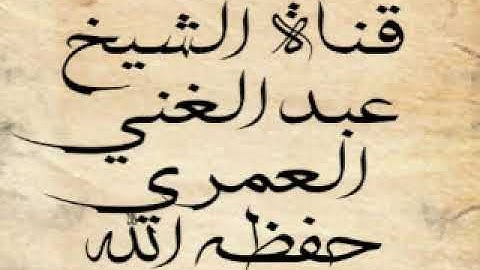 قناة الشيخ
عبد الغني
العمري
حفظه الله